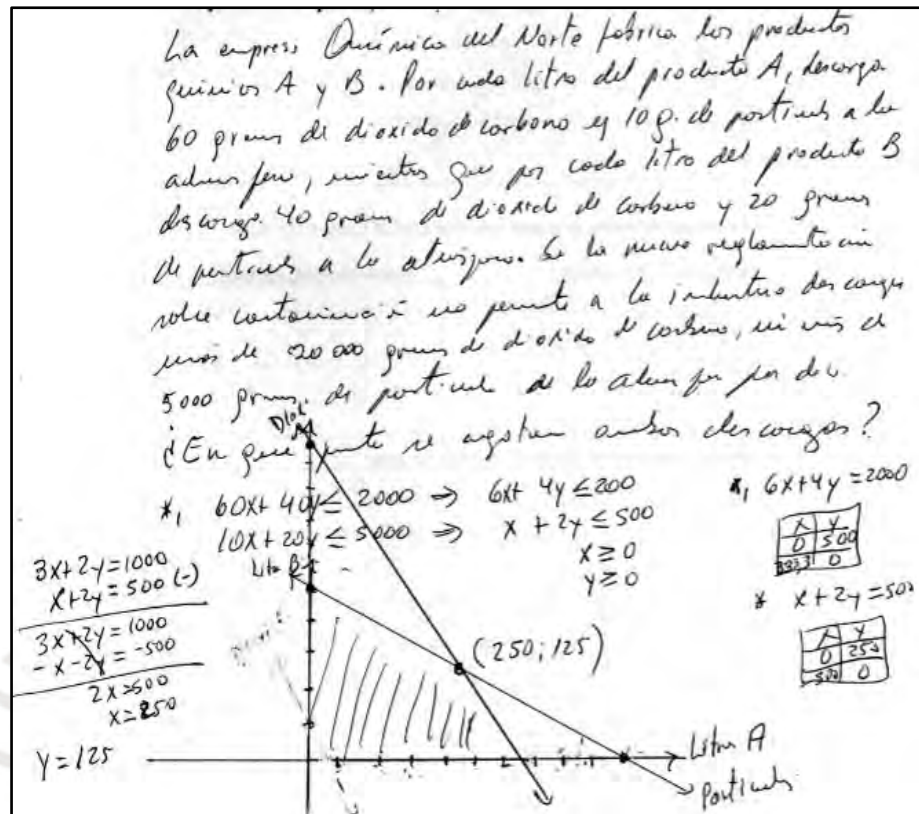 La empresa Química del Norte fabrica los productos
químicos A y B. Por cada litro del producto A, descarga
60 grams de dioxido de carbono y 10 g. de particulas a la
mientras que por cada litro del producto B
descarga 40 grams de dioxido de carbono y 20 grams
de particulas a la Si la nueva reglamentacion
sobre contaminación no permite a la industria descargar
más de 20000 grams de dioxido de carbono, ni más de
5000 grams. de particulas de la por dia.
¿En que punto se agotan ambos descargas?
*, 60x+40y≤2000 ⇒ 6x+4y≤200
10x+20y≤5000 ⇒ x+2y≤500
x≥0
y≥0
*, 6x+4y=2000
x y
0 500
333,3 0
* x+2y=500
x y
0 250
500 0
3x+2y=1000
x+2y=500 (-)
3x+2y=1000
-x-2y=-500
2x=500
x=250
y=125
Litro B
(250;125)
Litro A
Particulas